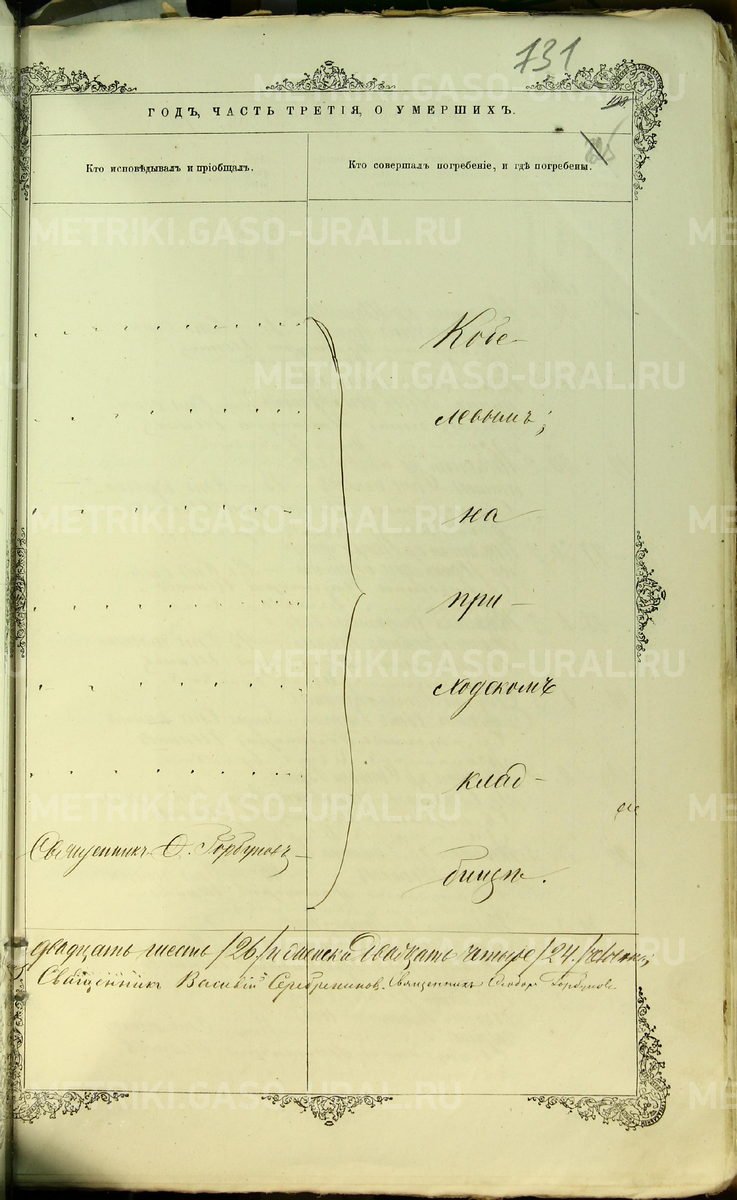 731
128
ГОДЪ, ЧАСТЬ ТРЕТІЯ, О УМЕРШИХЪ.
Кто исповѣдывалъ и пріобщалъ.
Кто совершалъ погребеніе, и гдѣ погребены.
Кобе-
левымъ;
на
при-
ходскомъ
клад-
бищѣ.
Священникъ Ѳ. Горбуновъ
двадцать шесть /26/ и женска двадцать четыре /24./
Священникъ Василій Серебренников. Священникъ Ѳеодоръ Горбуновъ
METRIKI.GASO-URAL.RU